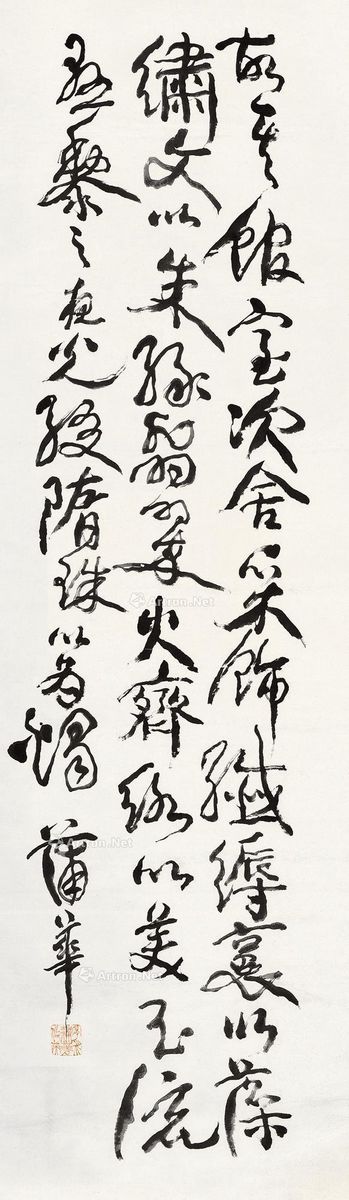 故其館室次舍采飾纖縟裛以藻
繡文以朱綠翡翠火齊絡以美玉流
懸黎之夜光綴隋珠以為燭 蒲華
Artron.Net
Artron.Net
Artron.Net